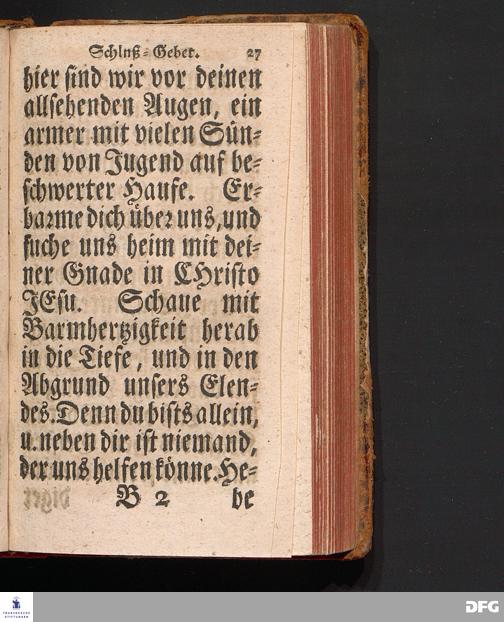 Schluß-Gebet. 27
hier sind wir vor deinen
allsehenden Augen, ein
armer mit vielen Sün-
den von Jugend auf be-
schwerter Haufe. Er-
barme dich über uns, und
suche uns heim mit dei-
ner Gnade in CHristo
JEsu. Schaue mit
Barmhertzigkeit herab
in die Tiefe, und in den
Abgrund unsers Elen-
des. Denn du bists allein,
u. neben dir ist niemand,
der uns helfen könne. He-
B 2 be
FRANCKESCHE
STIFTUNGEN
DFG